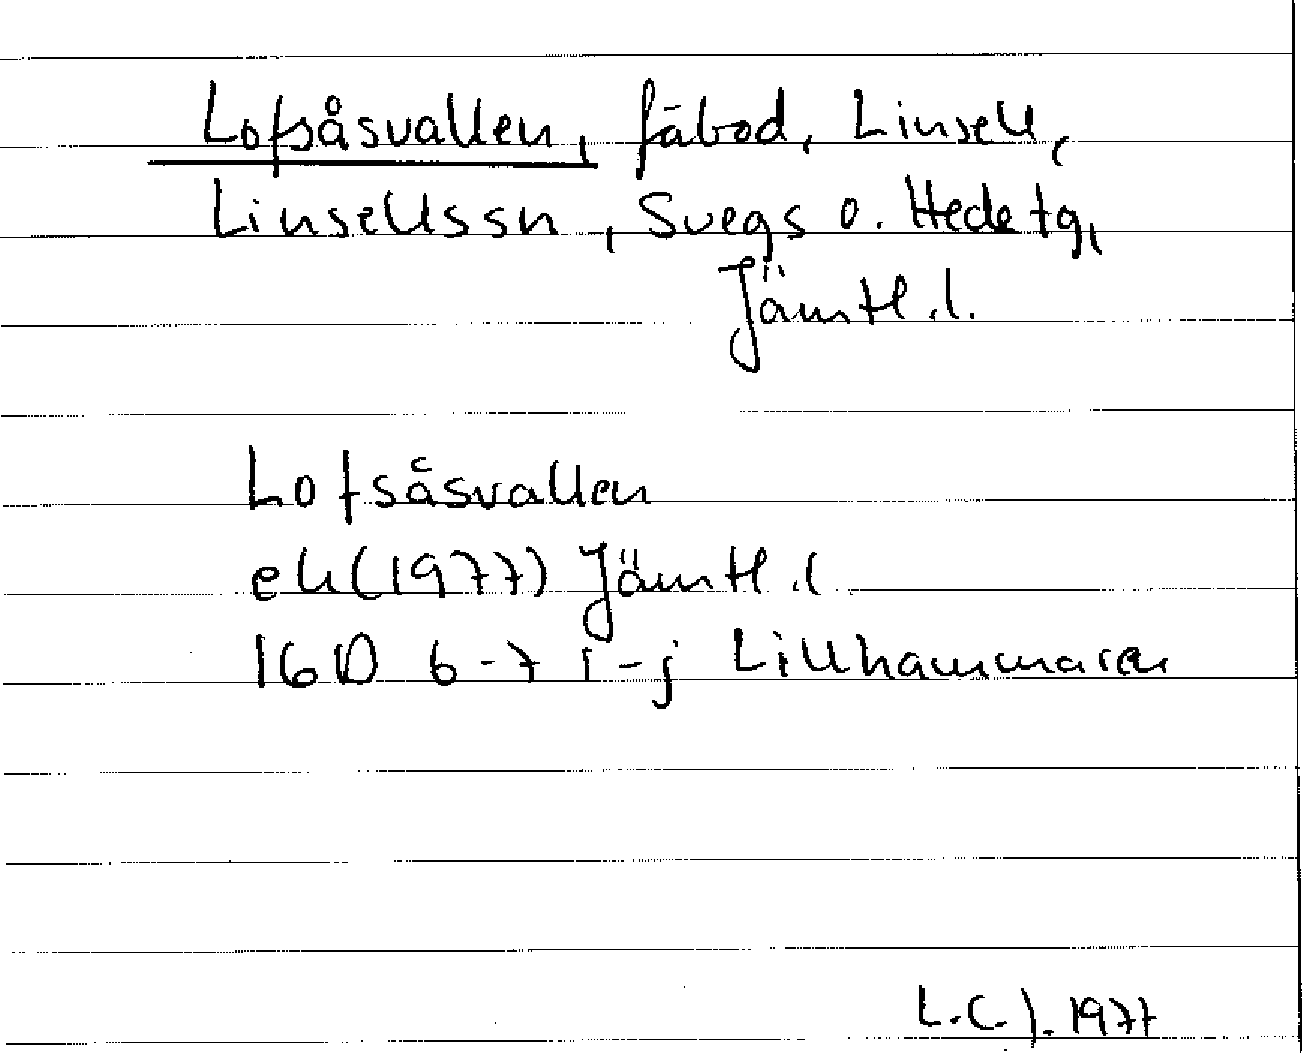 Lofsåsvallen, fäbod, Linsell,
Linsells sn, Svegs o. Hede tg,
Jämtl. l.
Lofsåsvallen
ek (1977) Jämtl. l
16D 6-7 i-j Lillhammaren
L.C.J. 1977